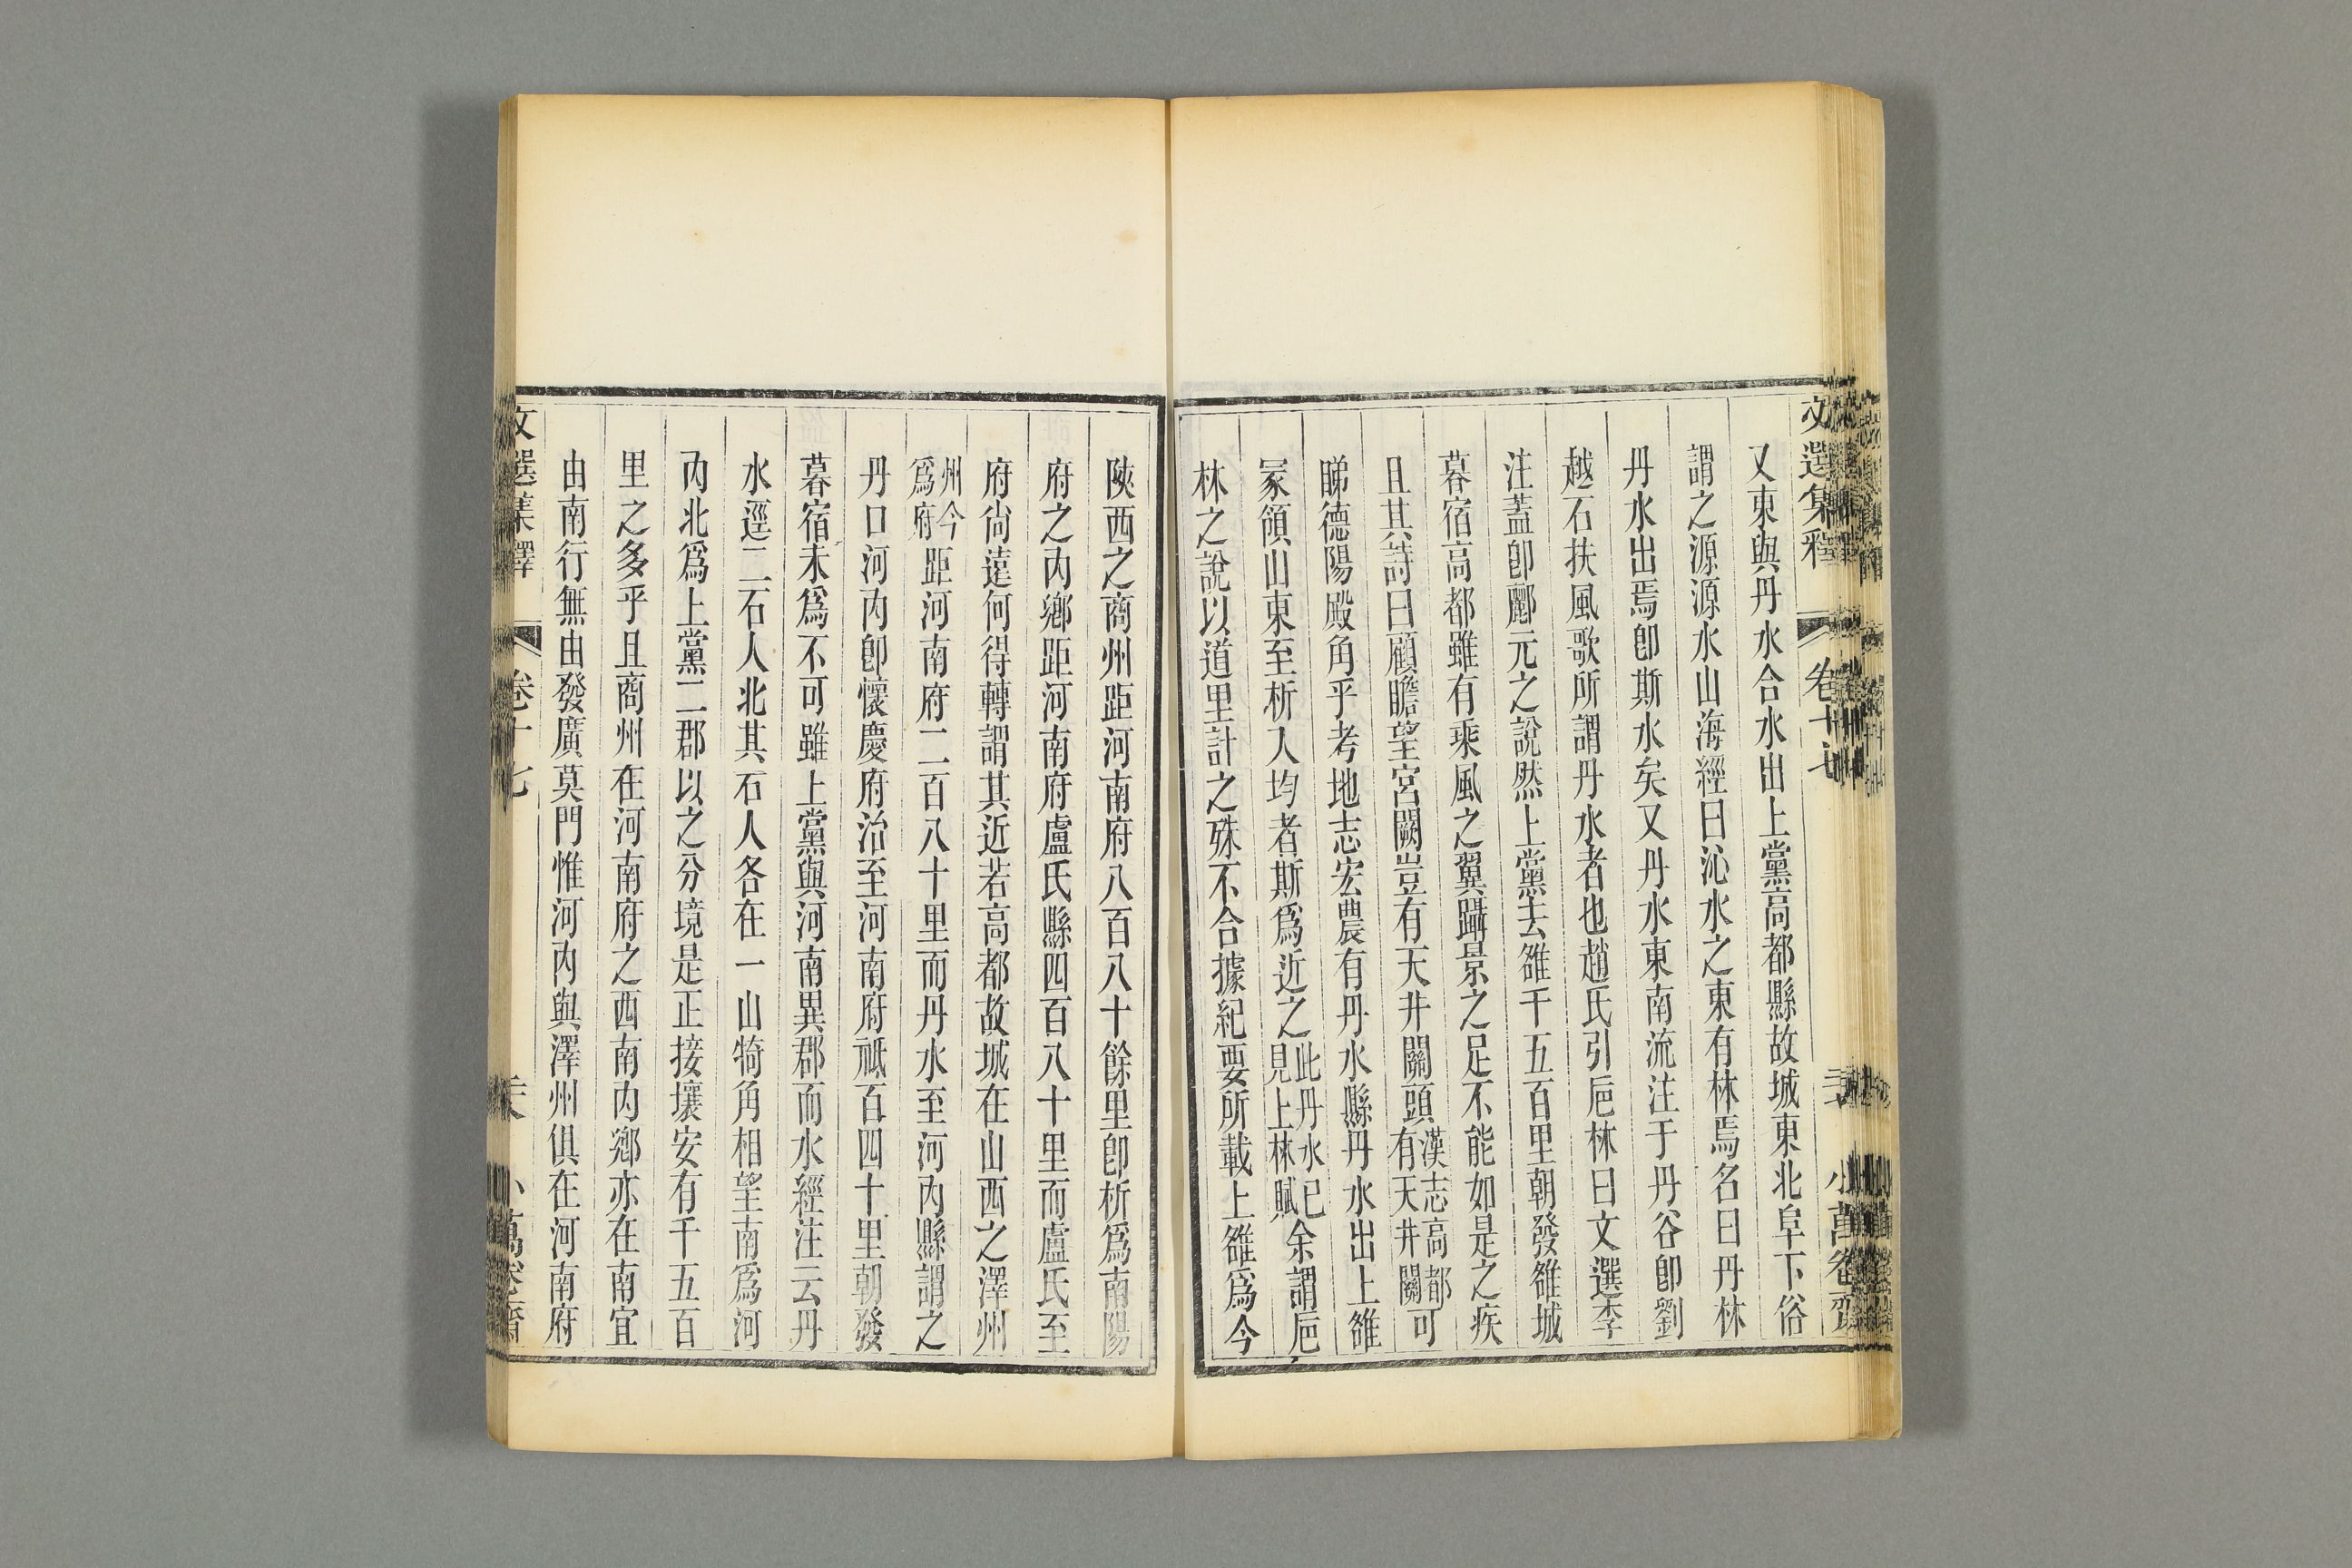 文選集釋 卷十七
又東與丹水合水出上黨高都縣故城東北阜下俗
謂之源源水山海經曰沁水之東有林焉名曰丹林
丹水出焉卽斯水矣又丹水東南流注于丹谷卽劉
越石扶風歌所謂丹水者也趙氏引巵林曰文選李
注蓋卽酈元之說然上黨去雒千五百里朝發雒城
暮宿高都雖有乘風之翼躡景之足不能如是之疾
且其詩曰顧瞻望宮闕豈有天井關頭漢志高都有天井關可
睇德陽殿角乎考地志宏農有丹水縣丹水出上雒
冢領山東至析入均者斯爲近之此丹水已見上林賦余謂巵
林之說以道里計之殊不合據紀要所載上雒爲今
陝西之商州距河南府八百八十餘里卽析爲南陽
府之內鄉距河南府盧氏縣四百八十里而盧氏至
府尙遠何得轉謂其近若高都故城在山西之澤州
州今爲府距河南府二百八十里而丹水至河內縣謂之
丹口河內卽懷慶府治至河南府祗百四十里朝發
暮宿未爲不可雖上黨與河南異郡而水經注云丹
水逕二石人北其石人各在一山犄角相望南爲河
內北爲上黨二郡以之分境是正接壤安有千五百
里之多乎且商州在河南府之西南內鄉亦在南宜
由南行無由發廣莫門惟河內與澤州俱在河南府
文選集釋 卷十七